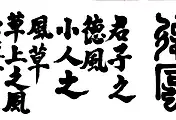 君子之
徳風
小人之
風草
草上之風